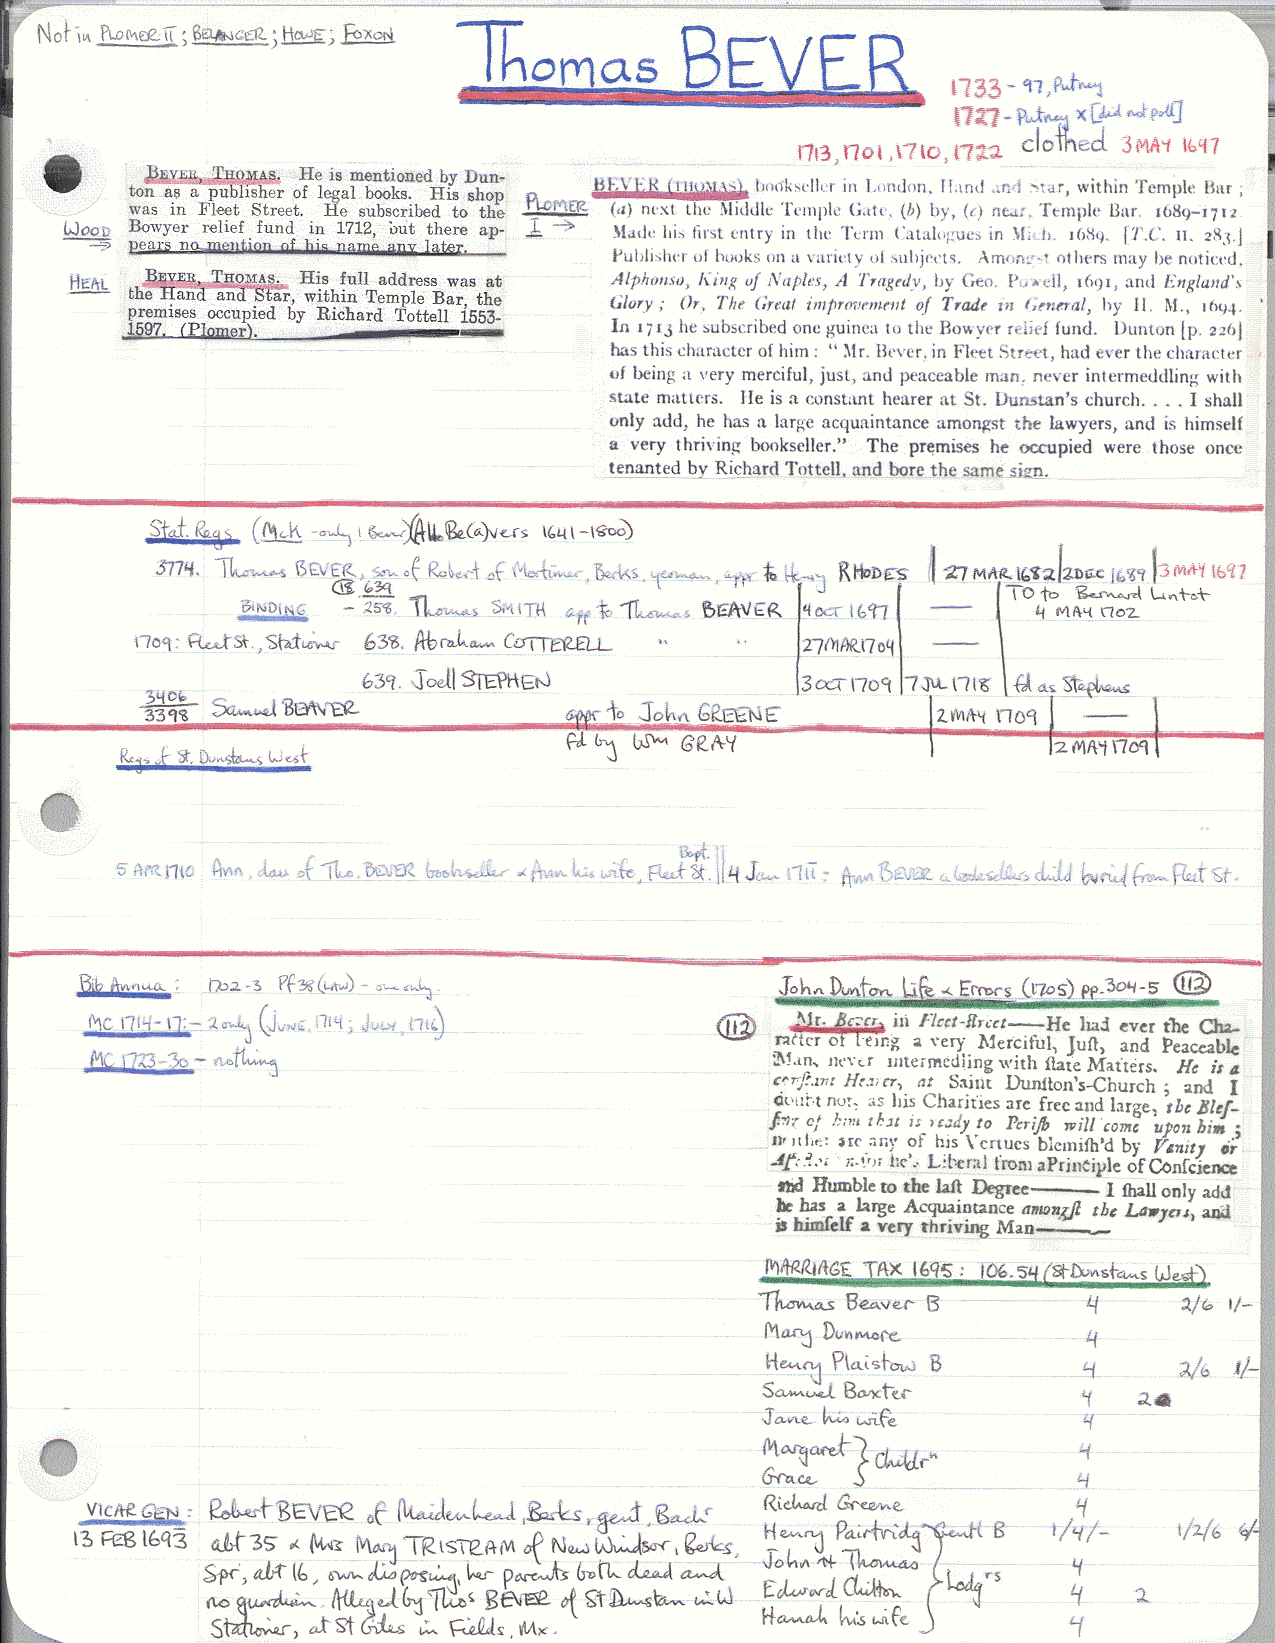 Not in PLOMER II; BELANGER; HOWE; FOXON
Thomas BEVER
1733 - 97, Putney
1727 - Putney x [did not poll]
1713, 1701, 1710, 1722 clothed 3 MAY 1697
WOOD →
BEVER, THOMAS. He is mentioned by Dun-
ton as a publisher of legal books. His shop
was in Fleet Street. He subscribed to the
Bowyer relief fund in 1712, but there ap-
pears no mention of his name any later.
HEAL
BEVER, THOMAS. His full address was at
the Hand and Star, within Temple Bar, the
premises occupied by Richard Tottell 1553-
1597. (Plomer).
PLOMER I →
BEVER (THOMAS), bookseller in London, Hand and Star, within Temple Bar;
(a) next the Middle Temple Gate, (b) by, (c) near, Temple Bar. 1689-1712.
Made his first entry in the Term Catalogues in Mich. 1689. [T.C. II. 283.]
Publisher of books on a variety of subjects. Amongst others may be noticed,
Alphonso, King of Naples, A Tragedy, by Geo. Powell, 1691, and England's
Glory; Or, The Great improvement of Trade in General, by H. M., 1694.
In 1713 he subscribed one guinea to the Bowyer relief fund. Dunton [p. 226]
has this character of him: "Mr. Bever, in Fleet Street, had ever the character
of being a very merciful, just, and peaceable man, never intermeddling with
state matters. He is a constant hearer at St. Dunstan's church. . . . I shall
only add, he has a large acquaintance amongst the lawyers, and is himself
a very thriving bookseller." The premises he occupied were those once
tenanted by Richard Tottell, and bore the same sign.
Stat. Regs (McK - only 1 Bever) (All Be(a)vers 1641-1800)
3774. Thomas BEVER, son of Robert of Mortimer, Berks, yeoman, appr to Henry RHODES | 27 MAR 1682 | 2 DEC 1689 | 3 MAY 1697
18 639
BINDING - 258. Thomas SMITH app to Thomas BEAVER | 4 OCT 1697 | — | TO to Bernard Lintot
4 MAY 1702
1709: Fleet St., Stationer 638. Abraham COTTERELL " " | 27 MAR 1704 | —
639. Joell STEPHEN | 3 OCT 1709 | 7 JUL 1718 | fd as Stephens
3406
3398 Samuel BEAVER appr to John GREENE | 2 MAY 1709 | — |
fd by Wm GRAY | 2 MAY 1709 |
Regs of St. Dunstans West
Bapt.
5 APR 1710 Ann, dau of Tho. BEVER bookseller & Ann his wife, Fleet St. || 4 Jan 1711: Ann BEVER a booksellers child buried from Fleet St.
Bib Annua: 1702-3 Pf 38 (LAW) - one only.
MC 1714-17:- 2 only (JUNE, 1714; JULY, 1716)
MC 1723-30 - nothing
John Dunton Life & Errors (1705) pp. 304-5 (112)
(112)
Mr. Bever, in Fleet-street——He had ever the Cha-
racter of being a very Merciful, Juſt, and Peaceable
Man, never intermedling with ſtate Matters. He is a
conſtant Hearer, at Saint Dunſton's-Church; and I
doubt not, as his Charities are free and large, the Bleſ-
ſing of him that is ready to Periſh will come upon him;
neither are any of his Vertues blemiſh'd by Vanity or
he's Liberal from a Principle of Conſcience
and Humble to the laſt Degree—— I ſhall only add
he has a large Acquaintance amongſt the Lawyers, and
is himſelf a very thriving Man——
MARRIAGE TAX 1695: 106.54 (St Dunstans West)
Thomas Beaver B 4 2/6 1/-
Mary Dunmore 4
Henry Plaistow B 4 2/6 1/-
Samuel Baxter 4 2
Jane his wife 4
Margaret } Childrn 4
Grace 4
Richard Greene 4
Henry Pairtridg Gentl B 1/4/- 1/2/6 6/-
John H Thomas 4
Edward Chilton } Lodgrs 4 2
Hanah his wife 4
VICAR GEN:
13 FEB 1693
Robert BEVER of Maidenhead, Berks, gent, Bachr
abt 35 & Mrs Mary TRISTRAM of New Windsor, Berks,
Spr, abt 16, own disposing, her parents both dead and
no guardian. Alleged by Thos BEVER of St Dunstan in W
Stationer, at St Giles in Fields, Mx.